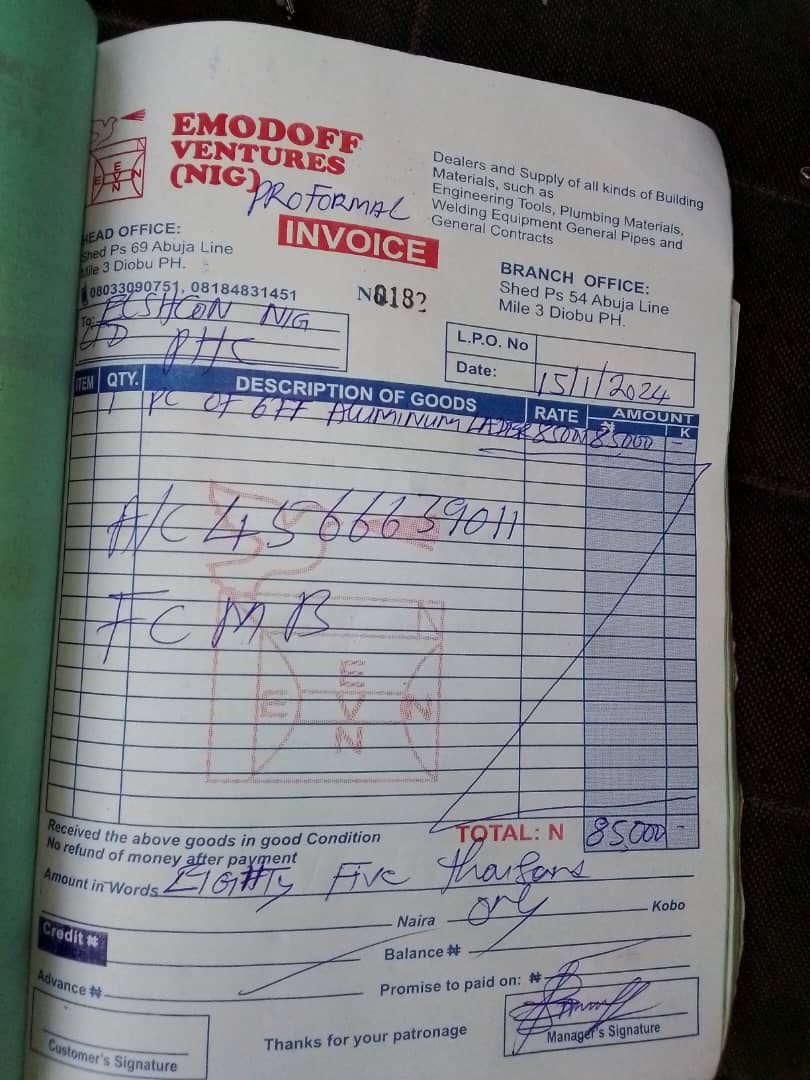 EMODOFF
VENTURES
(NIG)
PROFORMAL
INVOICE
Dealers and Supply of all kinds of Building
Materials, such as
Engineering Tools, Plumbing Materials,
Welding Equipment General Pipes and
General Contracts
HEAD OFFICE:
Shed Ps 69 Abuja Line
Mile 3 Diobu PH.
08033090751, 08184831451
BRANCH OFFICE:
Shed Ps 54 Abuja Line
Mile 3 Diobu PH.
No 0182
To: NIG
LTD PHC
L.P.O. No
Date: 15/1/2024
ITEM QTY. DESCRIPTION OF GOODS RATE AMOUNT
₦ K
1 PC OF 6FT ALUMINUM 85000 85000 -
A/C 4566639011
FCMB
E
E V N
N
TOTAL: N 85,000 -
Received the above goods in good Condition
No refund of money after payment
Amount in Words Eighty Five
Naira only Kobo
Credit ₦
Balance ₦
Advance ₦
Promise to paid on: ₦
Customer's Signature
Thanks for your patronage
Manager's Signature